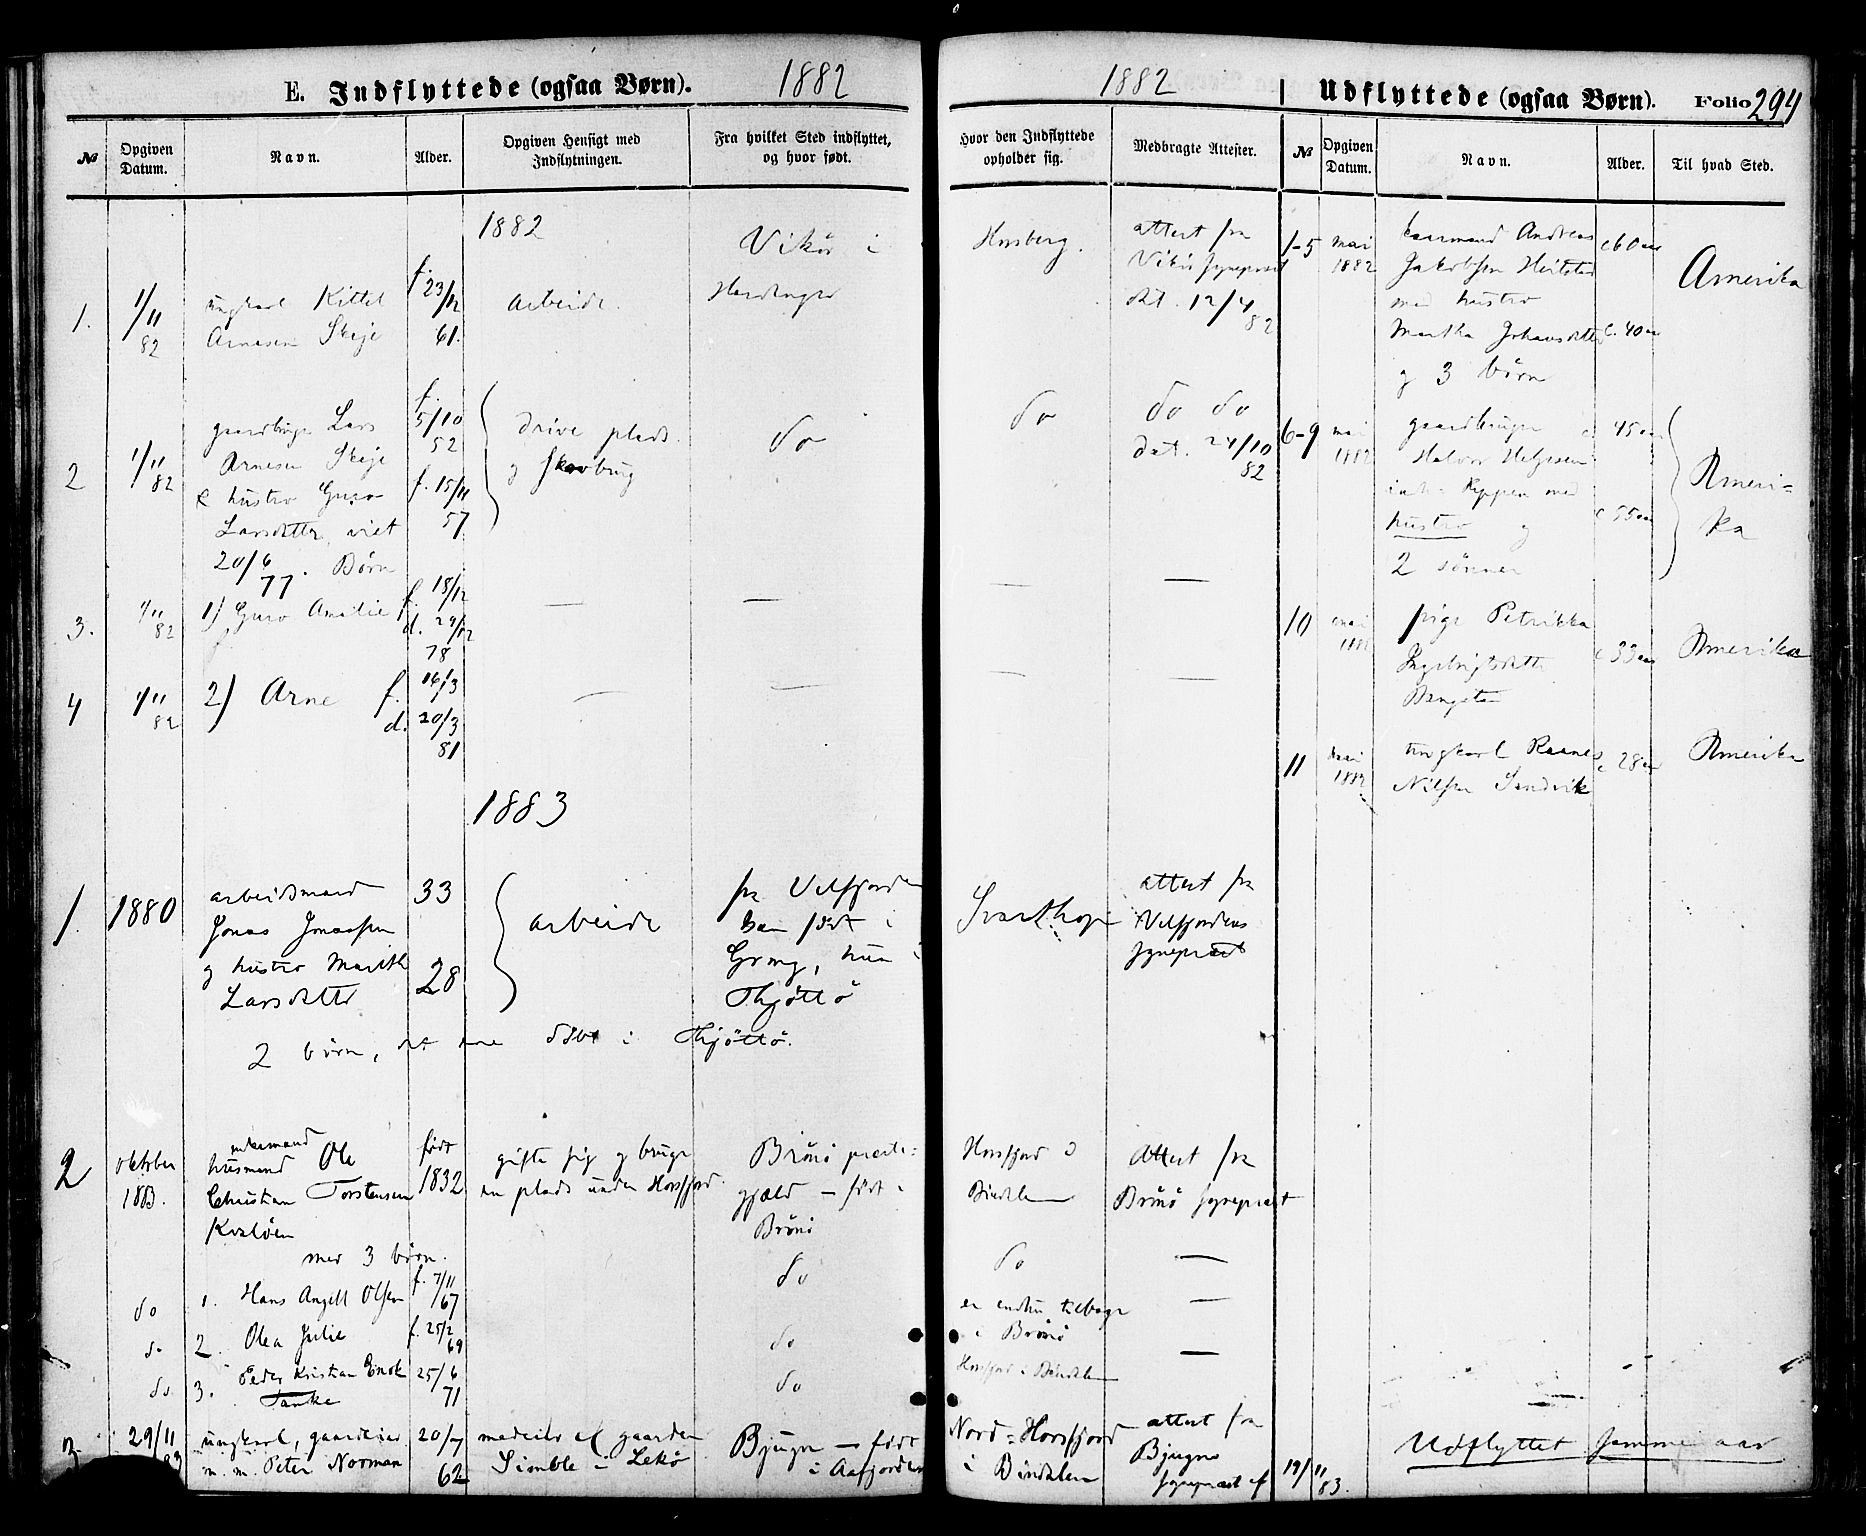 E. Indflyttede (ogsaa Børn). 1882
№
Opgiven Datum.
Navn.
Alder.
Opgiven Hensigt med Indflytningen.
Fra hvilket Sted indflyttet, og hvor født.
1882
1.
1/11 82
ungkarl Kittel
Arnesen Skeje
f. 23/12 61.
arbeide.
Vikör i
Hardanger
2
1/11 82
gaardbruger Lars
Arnesen Skeje
& hustro Guro
Larsdatter, viet
20/6 77. Børn
f. 5/10 52
f. 15/11 57
drive plads
og skovbrug
do
3.
1/11 82
1) Guro Amalie
f. 18/12
d. 29/12 78
—
—
4
1/11 82
2) Arne
f. 16/3
d. 20/3 81
—
—
1883
1.
1880
arbeidsmand
Jonas Jonassen
og hustro Marith
Larsdatter
33
28
arbeide
fra Velfjorden
han født i
Grong, hun i
Thjöttö
2 børn, det ene döbt i Thjöttö.
2
oktober
1883.
enkemand
husmand Ole
Christian Torstensen
Kvaløen
født
1832
gifte sig og bruge
en plads under Horsfjord
Brönö præste=
gjæld — født i
Brönö
med 3 börn.
do
1. Hans Angell Olsen
f. 7/11 67
do
do
2. Olea Julie
f. 25/2 69
do
do
3. Peder Kristian Enok
Tanke
25/6 71
do
3
29/11 83
ungkarl, gaardeier
m. m. Peter Norman
20/7 62
medeier af gaarden
Simble i Lekö
Bjugn — født
i Aafjorden
1882
Udflyttede (ogsaa Børn). Folio 294
Hvor den Indflyttede opholder sig.
Medbragte Attester.
№
Opgiven Datum.
Navn.
Alder.
Til hvad Sted.
attest fra
Vikör sogneprest
dat. 12/4 82
1-5
mai
1882
Andreas
Jakobsen
med hustro
Martha Johansdatter
og 3 börn
c 60 aar
c. 40 aar
Amerika
do
do do
dat. 24/10 82
6-9
mai
1882
gaardbruger
Halvor Helgesen
med
hustro og
2 sönner
c 45 aar
c 55 aar
Ameri=
ka
—
—
10
mai
1882
pige Petrikka
Ingebrigtsdatter
c 33 aar
Amerika
—
—
11
mai
1882
ungkarl
Nilsen Sandvik
c 28 aar
Amerika
attest fra
Velfjordens
sogneprest
Horsfjord i
Bindalen
Attest fra
Brönö sogneprest
do
—
er endnu tilbage
i Brönö
—
Horsfjord i Bindalen
—
Nord=Horsfjord
i Bindalen
attest fra
Bjugns
sogneprest af
19/11 83.
Udflyttet samme aar